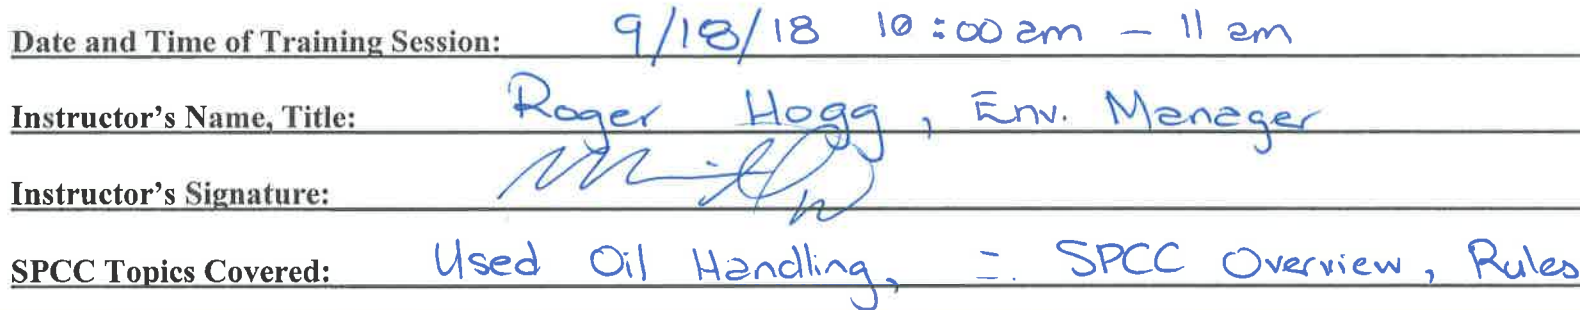 Date and Time of Training Session: 9/18/18 10:00 am - 11 am
Instructor's Name, Title: Roger Hogg, Env. Manager
Instructor's Signature:
SPCC Topics Covered: Used Oil Handling, SPCC Overview, Rules